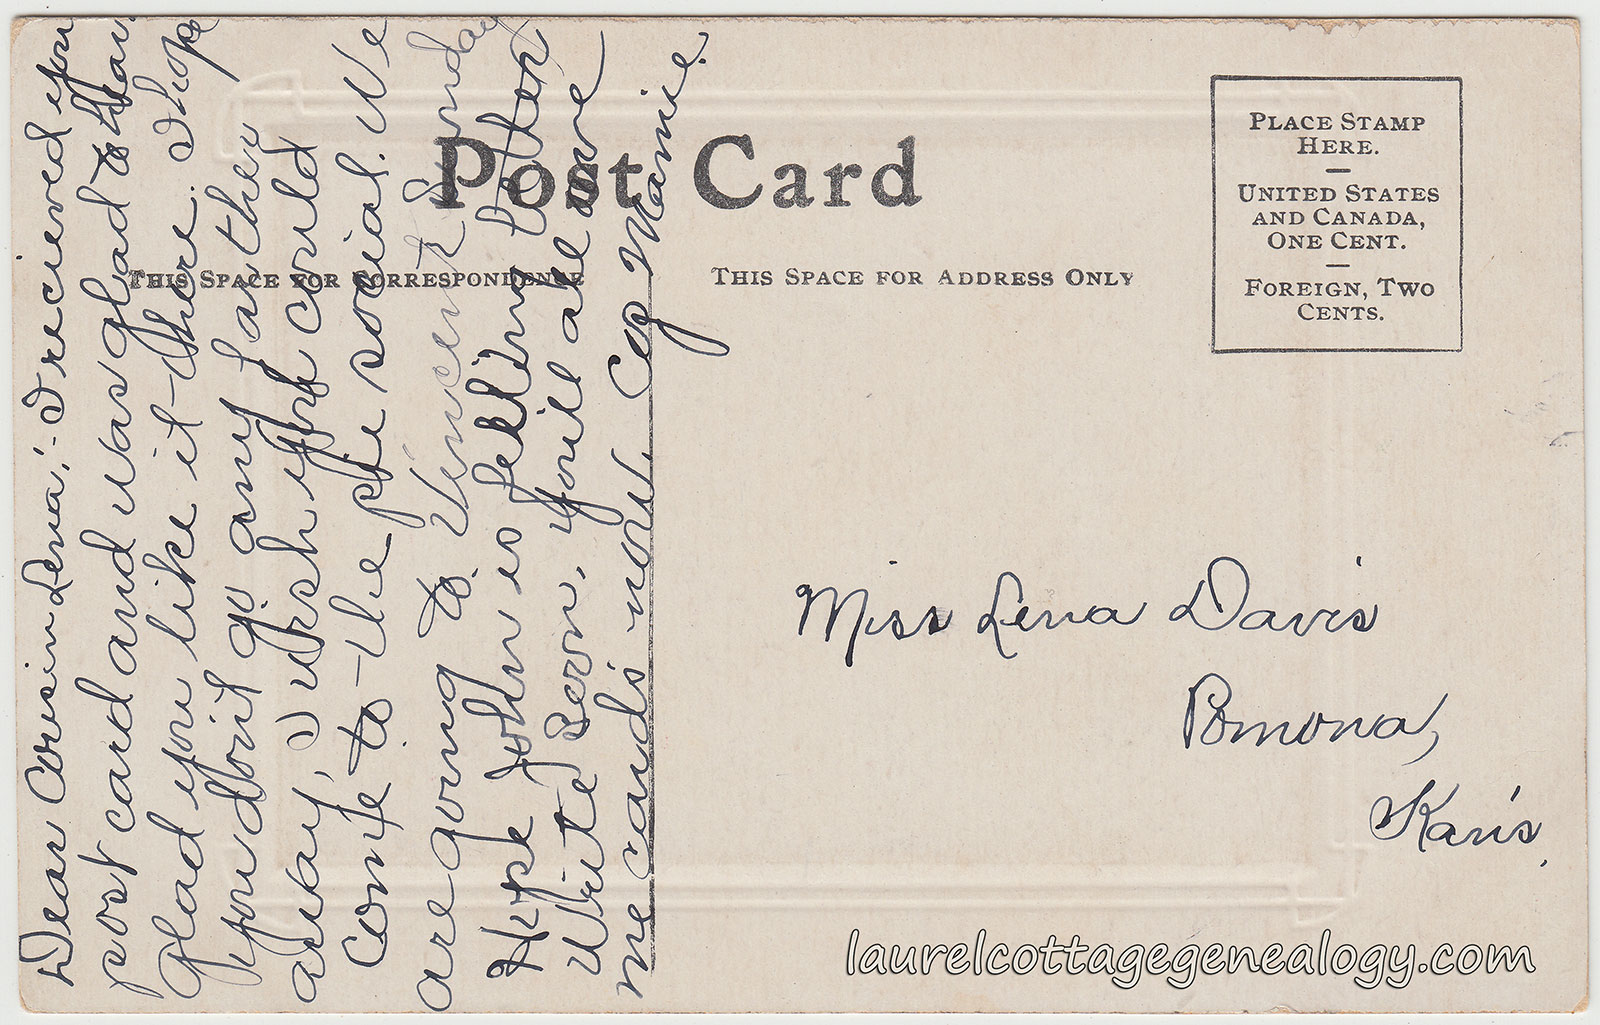 Dear Cousin Lena:- I recieved your
post card and was glad to hear.
glad you like it there. I hope
you don't go any farther
away. I wish you could
come to the pie social. We
are going to Vincent Sunday
Hope John is feeling better
Write soon, you'll all owe
me cards now. Coz Mamie.
Post Card
THIS SPACE FOR CORRESPONDENCE
THIS SPACE FOR ADDRESS ONLY
PLACE STAMP
HERE.
UNITED STATES
AND CANADA,
ONE CENT.
FOREIGN, TWO
CENTS.
Miss Lena Davis
Pomona,
Kans.
laurelcottagegenealogy.com